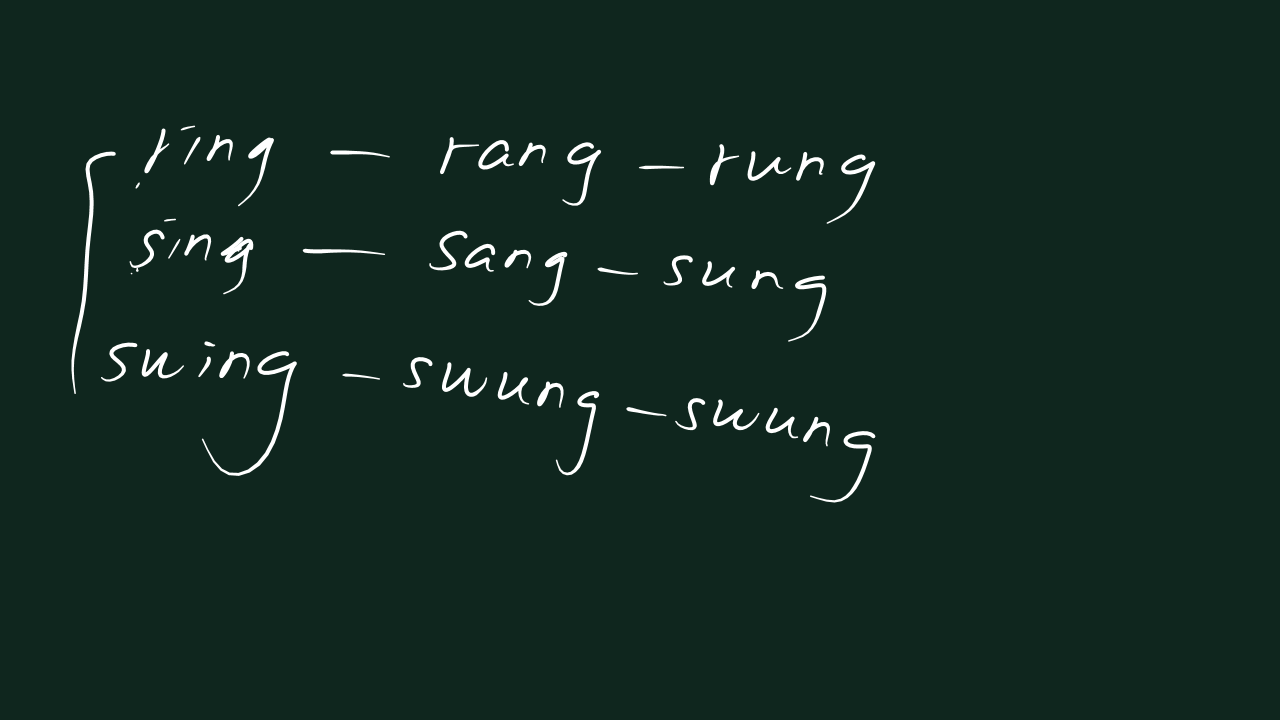 ring — rang — rung
sing — sang — sung
swing — swung — swung